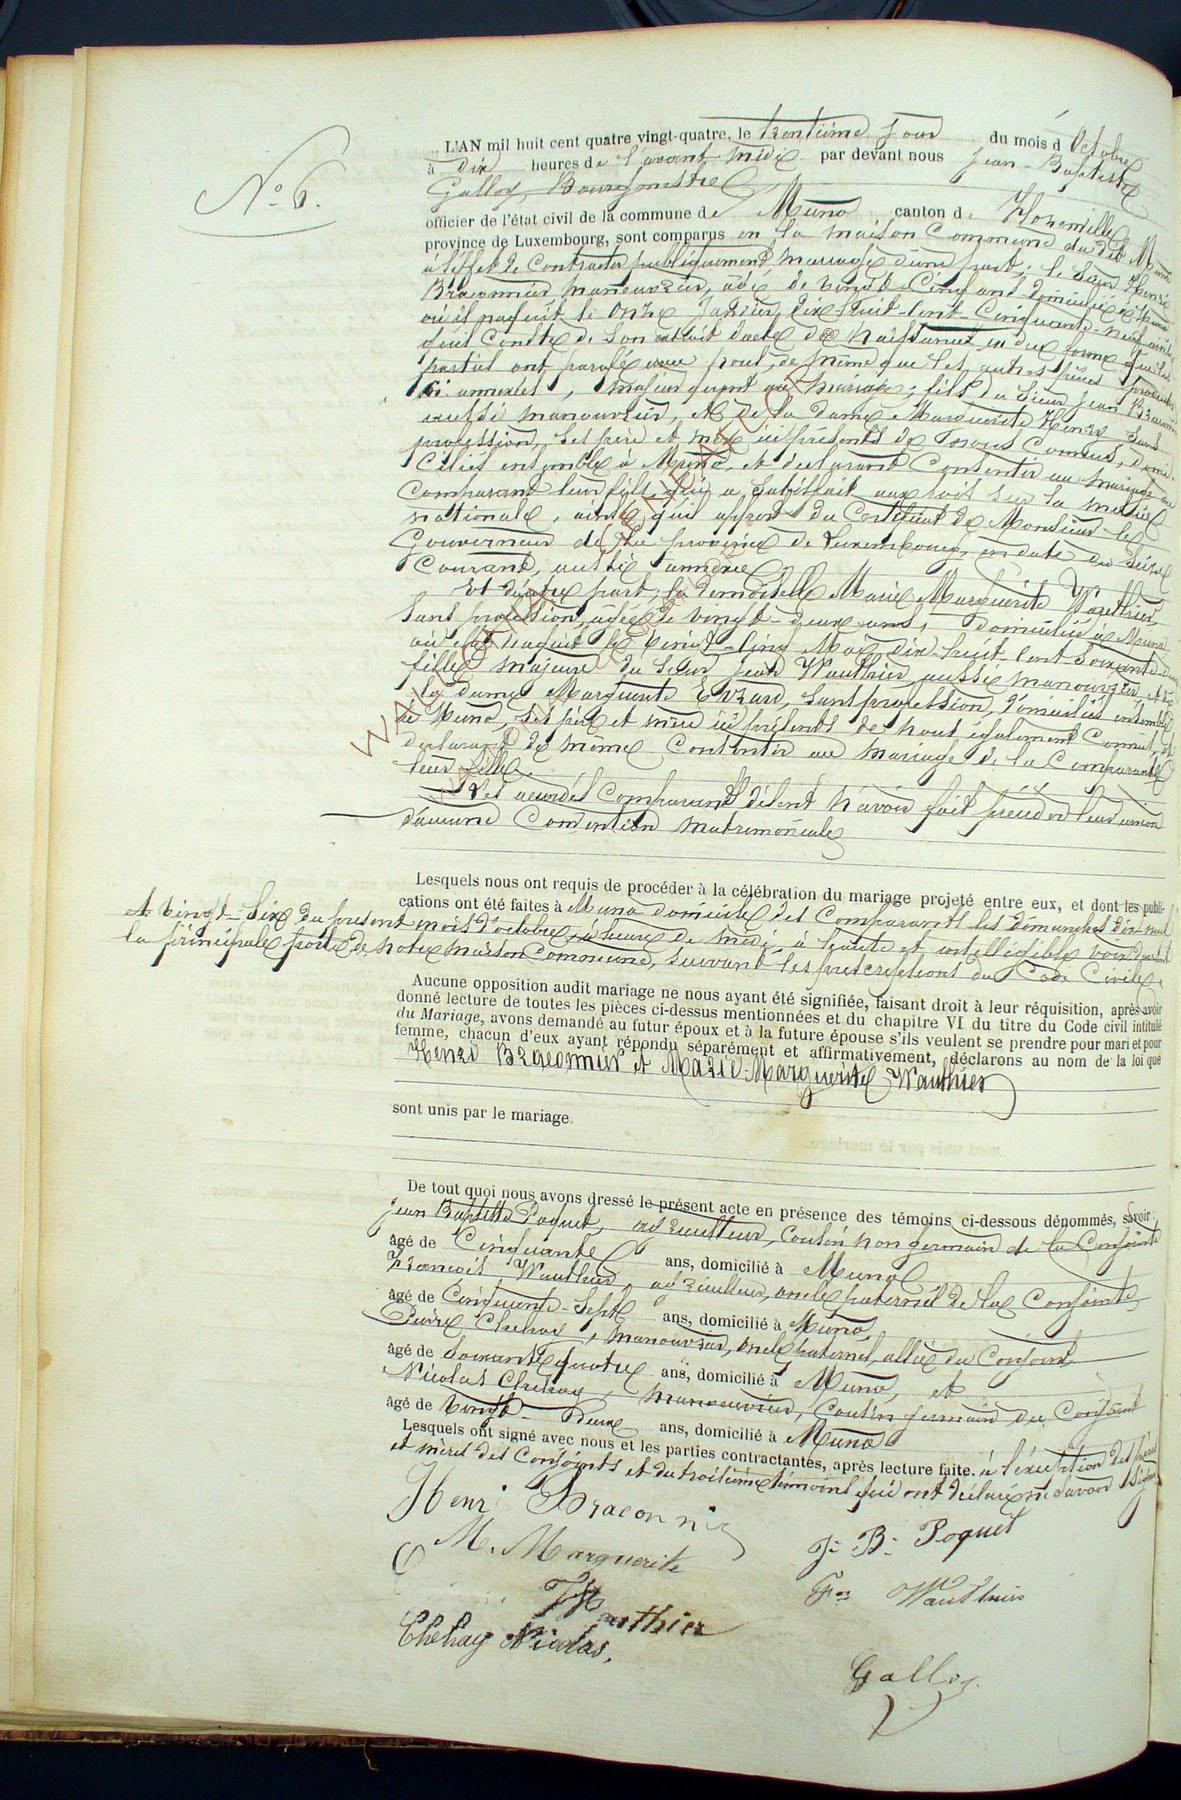 N° 6.
L'AN mil huit cent quatre vingt-quatre, le trentième jour du mois d'Octobre
à dix heures de l'avant midi par devant nous Jean-Baptiste
Galloy, Bourgmestre
officier de l'état civil de la commune de Muno canton de Florenville
province de Luxembourg, sont comparus en la maison Commune du dit Muno
à l'effet de Contracter publiquement mariage d'une part; le Sieur Henri
Braconnier manouvrier, âgé de vingt-Cinq ans domicilié à Muno
où il naquit le onze Janvier dix-huit-Cent-Cinquante-neuf ainsi
qu'il Conste de Son extrait d'acte de naissance en due forme que les
parties ont paraphé avec nous, de même que les autres pièces
ci annexées, majeur quant au mariage; fils du Sieur Jean Braconnier
aussi manouvrier, et de la dame Marguerite Henry Sans
profession, Ses père et mère ici présents de nous Connus, domi-
ciliés ensemble à Muno, et déclarant Consentir au mariage du
Comparant leur fils, qui a Satisfait aux lois sur la milice
nationale, ainsi qu'il appert du Certificat de Monsieur le
Gouverneur de la province de Luxembourg, en date du Seize
Courant, aussi annexé.
Et d'autre part, la demoiselle Marie Marguerite Wauthier
Sans profession, âgée de vingt-deux ans, domiciliée à Muno
où elle naquit le vingt-Cinq Mai dix-huit-Cent Soixante-deux
fille majeure du Sieur Jean Wauthier aussi manouvrier, et de
la dame Marguerite Evrard, Sans profession, domiciliés ensemble
à Muno, Ses père et mère ici présents de nous également Connus, et
déclarant de même Consentir au mariage de la Comparante
leur fille.
Les Comparants disent n'avoir fait précéder leur union
d'aucune Convention matrimoniale
Lesquels nous ont requis de procéder à la célébration du mariage projeté entre eux, et dont les publi-
cations ont été faites à Muno domicile des Comparants les dimanches dix-neuf
et vingt-Six du présent mois d'octobre, à heure de midi, à haute et intelligible voix devant
la principale porte de notre maison Commune, suivant les prescriptions du Code Civil.
Aucune opposition audit mariage ne nous ayant été signifiée, faisant droit à leur réquisition, après avoir
donné lecture de toutes les pièces ci-dessus mentionnées et du chapitre VI du titre du Code civil intitulé
du Mariage, avons demandé au futur époux et à la future épouse s'ils veulent se prendre pour mari et pour
femme, chacun d'eux ayant répondu séparément et affirmativement, déclarons au nom de la loi que
Henri Braconnier et Marie-Marguerite Wauthier
sont unis par le mariage.
De tout quoi nous avons dressé le présent acte en présence des témoins ci-dessous dénommés, savoir:
Jean Baptiste Poquet, agriculteur, Cousin non germain de la Conjointe
âgé de Cinquante ans, domicilié à Muno
François Wauthier, agriculteur, oncle paternel de la Conjointe
âgé de Cinquante-Sept ans, domicilié à Muno,
Pierre Chehay, manouvrier, oncle paternel, allié du Conjoint
âgé de Soixante quatre ans, domicilié à Muno, et
Nicolas Chehay, manouvrier, Cousin germain du Conjoint
âgé de vingt-Deux ans, domicilié à Muno
Lesquels ont signé avec nous et les parties contractantes, après lecture faite. à l'exception des pères
et mères des Conjoints et du troisième témoins qui ont déclaré ne Savoir Signer
Henri Braconnier
M. Marguerite
Wauthier
J. B. Poquet
Fois Wauthier
Chehay Nicolas.
Galloy.